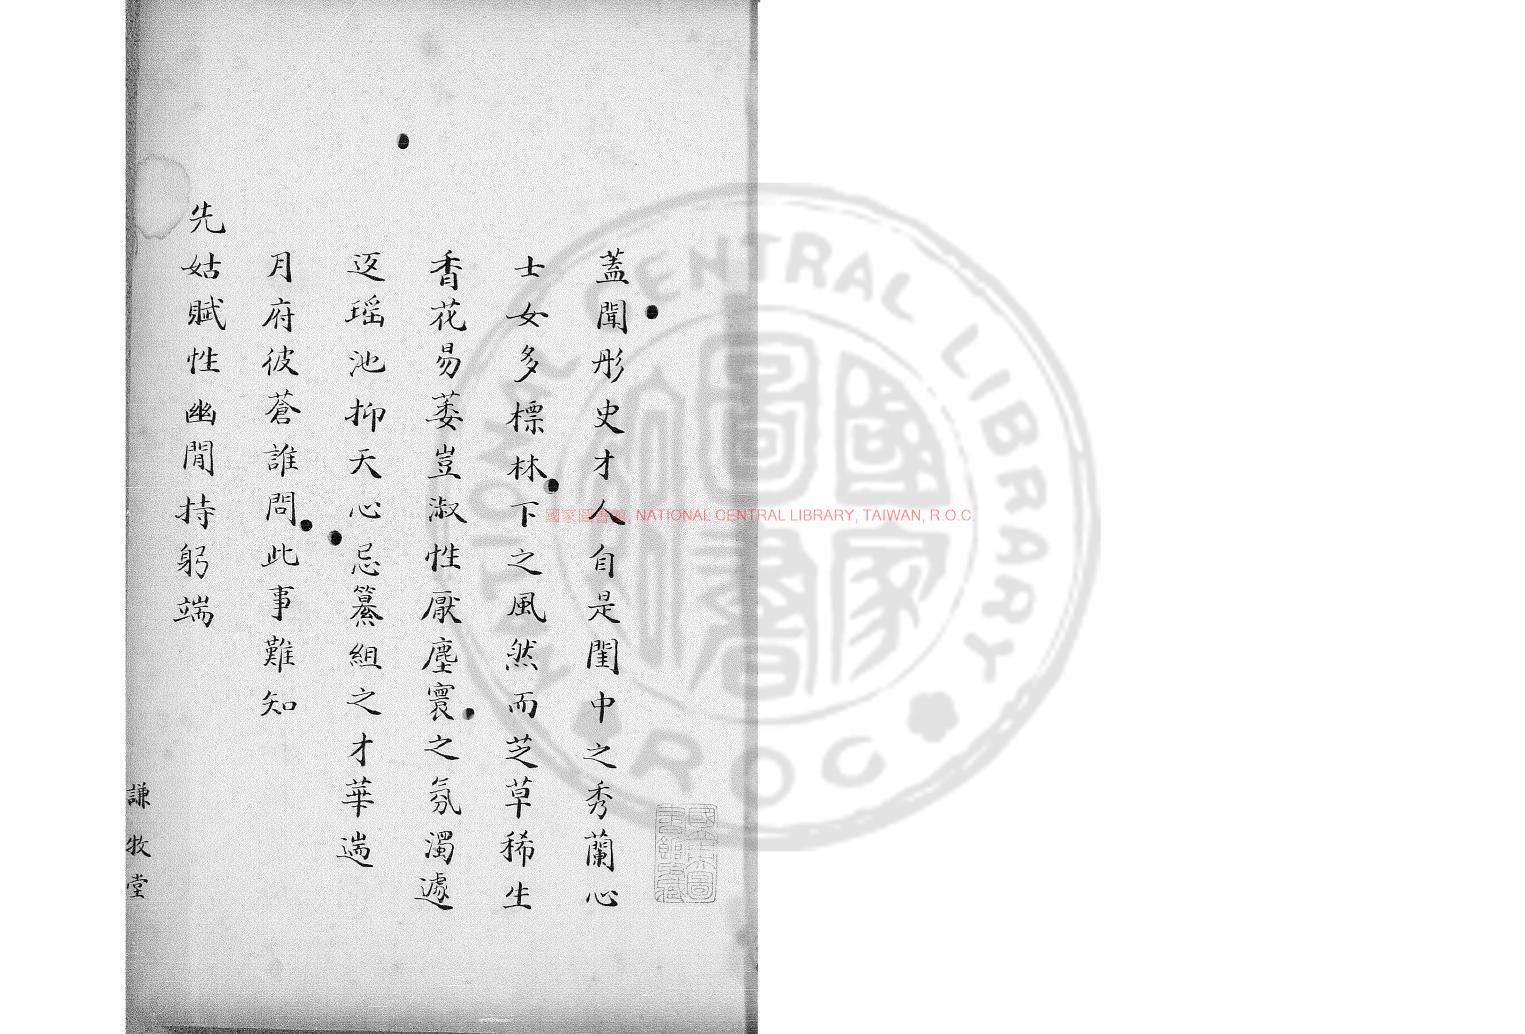 蓋聞彤史才人自是閨中之秀蘭心
士女多標林下之風然而芝草稀生
香花易萎豈淑性厭塵寰之氛濁遽
返瑶池抑天心忌纂組之才華遄
月府彼蒼誰問此事難知
先姑賦性幽閒持躬端
謙牧堂
國家圖書館, NATIONAL CENTRAL LIBRARY, TAIWAN, R.O.C.
NATIONAL CENTRAL LIBRARY
R O C